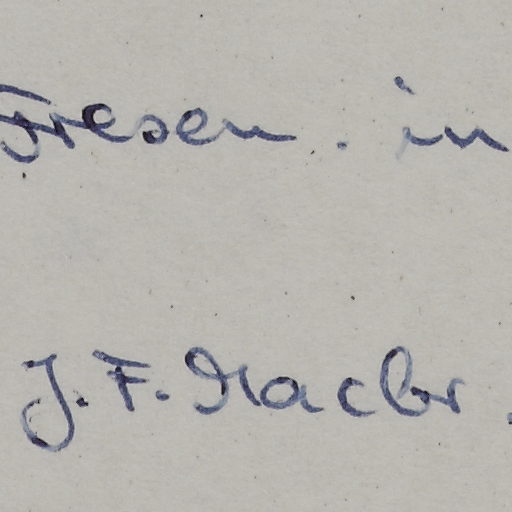 Fresen. in
J. F. Macbr.